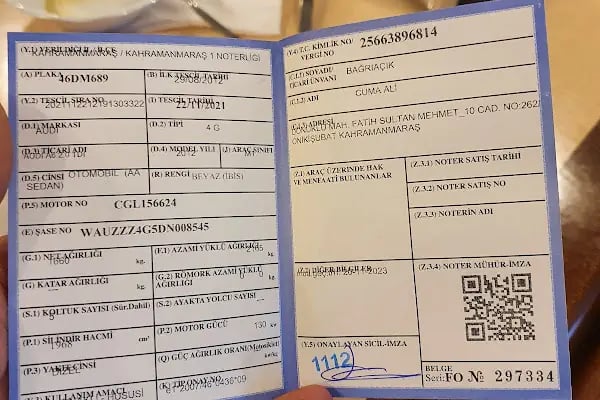 (Y.1) VERİLDİĞİ İL/İLÇE
KAHRAMANMARAŞ / KAHRAMANMARAŞ 1 NOTERLİĞİ
(A) PLAKA
46DM689
(B) İLK TESCİL TARİHİ
29/08/2012
(Y.2) TESCİL SIRA NO
(I) TESCİL TARİHİ
22/11/2021
(D.1) MARKASI
AUDI
(D.2) TİPİ
4 G
(D.3) TİCARİ ADI
(D.4) MODEL YILI
2012
(J) ARAÇ SINIFI
M1
(D.5) CİNSİ
OTOMOBİL (AA SEDAN)
(R) RENGİ
BEYAZ (İBİS)
(P.5) MOTOR NO
CGL156624
(E) ŞASE NO
WAUZZZ4G5DN008545
(G.1) NET AĞIRLIĞI
1660 kg.
(F.1) AZAMİ YÜKLÜ AĞIRLIĞI
kg.
(G) KATAR AĞIRLIĞI
kg.
(G.2) RÖMORK AZAMİ YÜKLÜ AĞIRLIĞI
kg.
(S.1) KOLTUK SAYISI (Sür.Dahil)
(S.2) AYAKTA YOLCU SAYISI
(P.1) SİLİNDİR HACMİ
1968 cm³
(P.2) MOTOR GÜCÜ
130 kw
(P.3) YAKIT CİNSİ
DİZEL
(Q) GÜÇ AĞIRLIK ORANI (Motosiklet)
kw/kg
KULLANIM AMACI
HUSUSİ
(K) TİP ONAY NO
(Y.4) T.C. KİMLİK NO/
VERGİ NO
25663896814
(C.1.1) SOYADI/
TİCARİ ÜNVANI
BAĞRIAÇIK
(C.1.2) ADI
CUMA ALİ
(C.1.3) ADRESİ
MAH. FATİH SULTAN MEHMET_10 CAD. NO:262/
ONİKİŞUBAT KAHRAMANMARAŞ
(Z.1) ARAÇ ÜZERİNDE HAK
VE MENFAATİ BULUNANLAR
(Z.3.1) NOTER SATIŞ TARİHİ
(Z.3.2) NOTER SATIŞ NO
(Z.3.3) NOTERİN ADI
(Z.2) DİĞER BİLGİLER
(Z.3.4) NOTER MÜHÜR-İMZA
(Y.5) ONAYLAYAN SİCİL-İMZA
1112
BELGE
Seri: FO № 297334